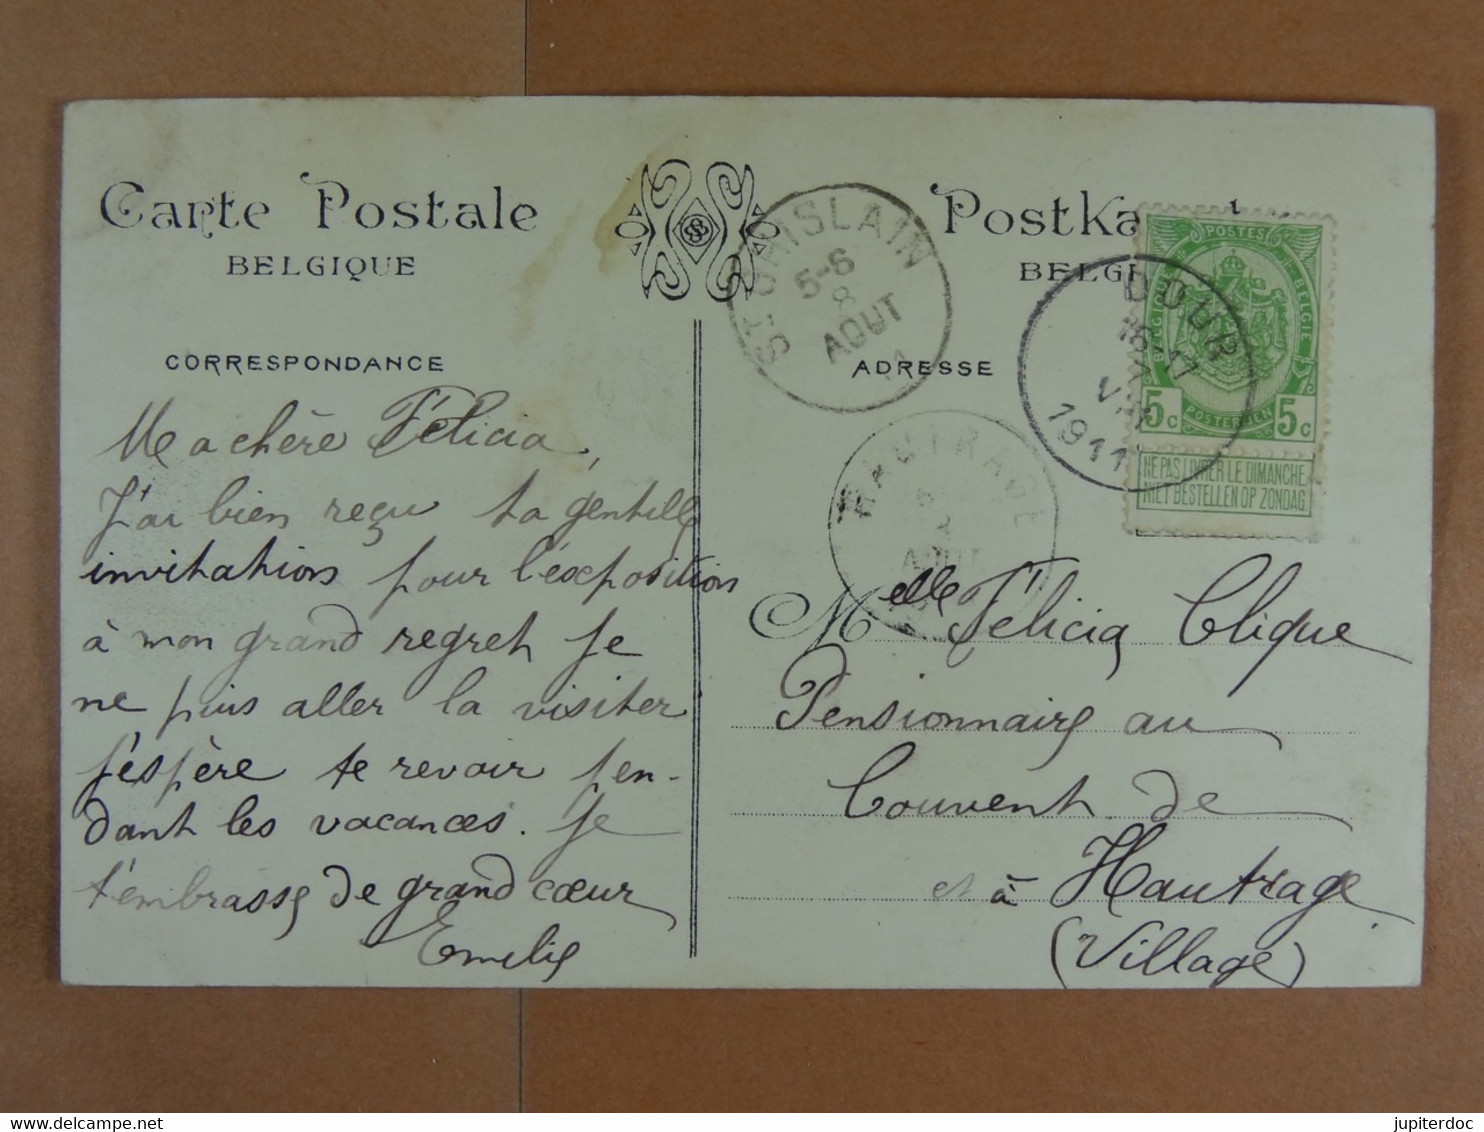 Carte Postale
BELGIQUE
CORRESPONDANCE
Ma chère Félicia,
J'ai bien reçu ta gentille
invitations pour l'exposition
à mon grand regret je
ne puis aller la visiter
j'espère te revoir pen-
dant les vacances. Je
t'embrasse de grand cœur
Emilie
ST-GHISLAIN
5-6
8
AOUT
11
Postka
BELGI
ADRESSE
DOUR
16-17
VIII
1911
POSTES
BELGIQUE
BELGIE
5c
POSTERIJEN
5c
NE PAS LIVRER LE DIMANCHE
NIET BESTELLEN OP ZONDAG
HAUTRAGE
8
AOUT
Melle Félicia Clique
Pensionnaire au
Couvent de
et à Hautrage
(Village)
jupiterdoc